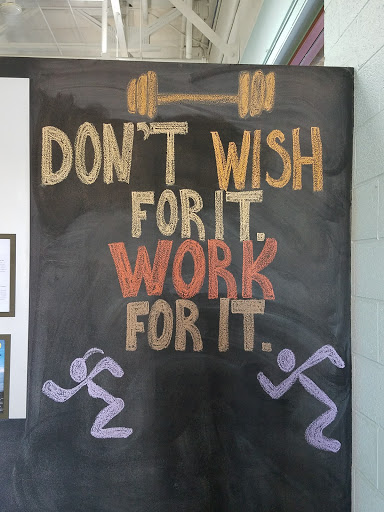 DON'T WISH
FOR IT.
WORK
FOR IT.